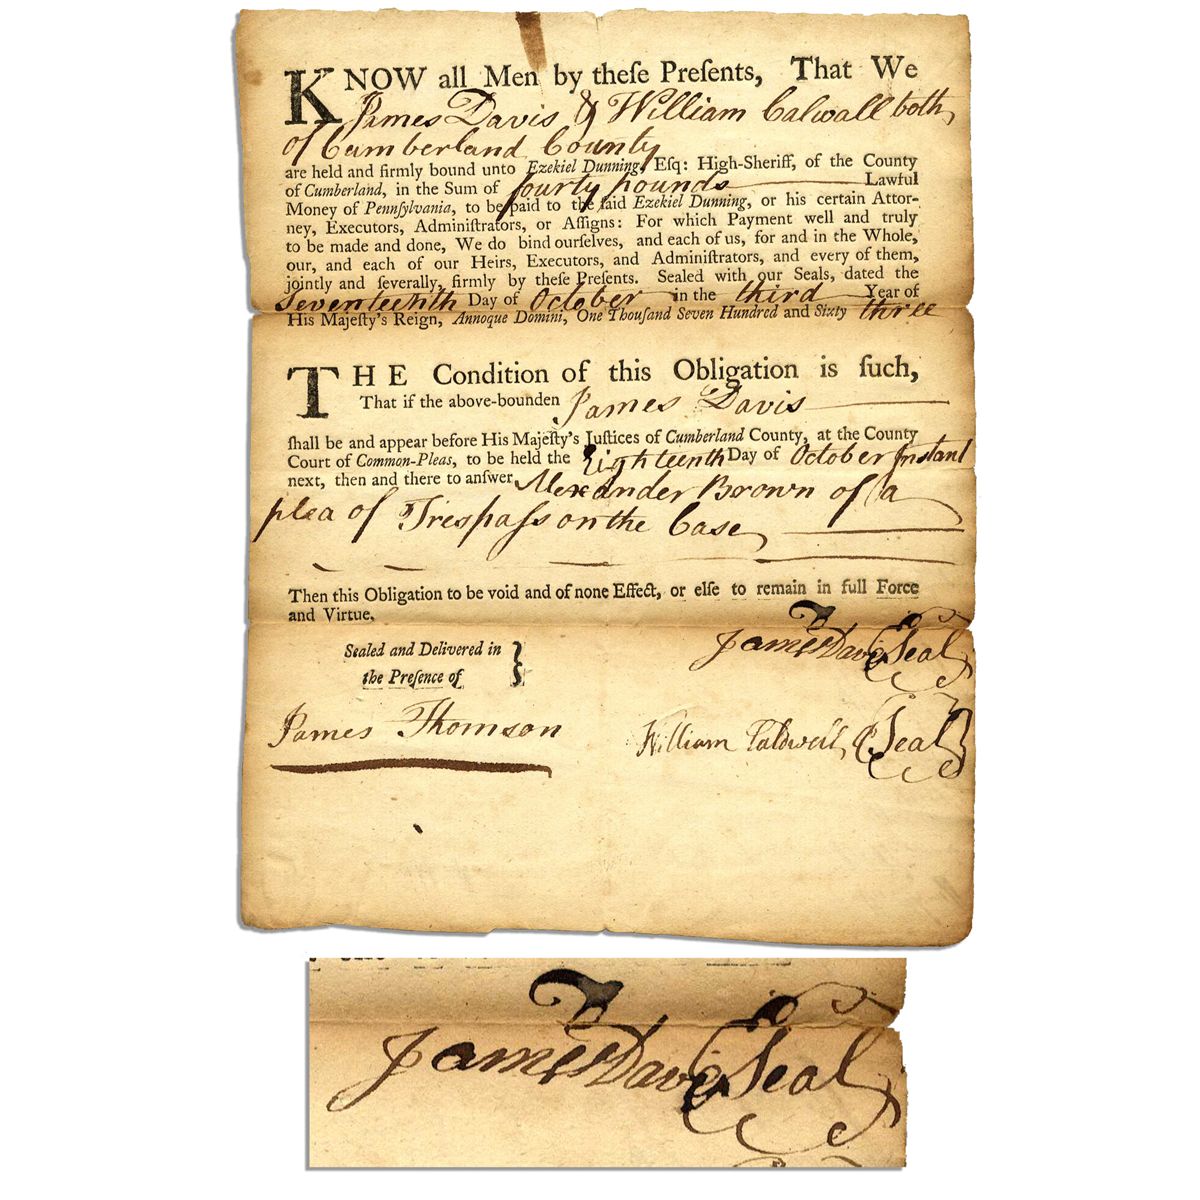 KNOW all Men by theſe Preſents, That We
James Davis & William Calwall both
of Cumberland County
are held and firmly bound unto Ezekiel Dunning, Eſq: High-Sheriff, of the County
of Cumberland, in the Sum of fourty pounds Lawful
Money of Pennſylvania, to be paid to the ſaid Ezekiel Dunning, or his certain Attor-
ney, Executors, Adminiſtrators, or Aſſigns: For which Payment well and truly
to be made and done, We do bind ourſelves, and each of us, for and in the Whole,
our, and each of our Heirs, Executors, and Adminiſtrators, and every of them,
jointly and ſeverally, firmly by theſe Preſents. Sealed with our Seals, dated the
Seventeenth Day of October in the third Year of
His Majeſty's Reign, Annoque Domini, One Thouſand Seven Hundred and Sixty three
THE Condition of this Obligation is ſuch,
That if the above-bounden James Davis
ſhall be and appear before His Majeſty's Juſtices of Cumberland County, at the County
Court of Common-Pleas, to be held the Eighteenth Day of October Instant
next, then and there to anſwer Alexander Brown of a
plea of Treſpaſs on the Case
Then this Obligation to be void and of none Effect, or elſe to remain in full Force
and Virtue.
Sealed and Delivered in
the Preſence of
James Davis Seal
James Thomson
William Caldwell Seal
James Davis Seal